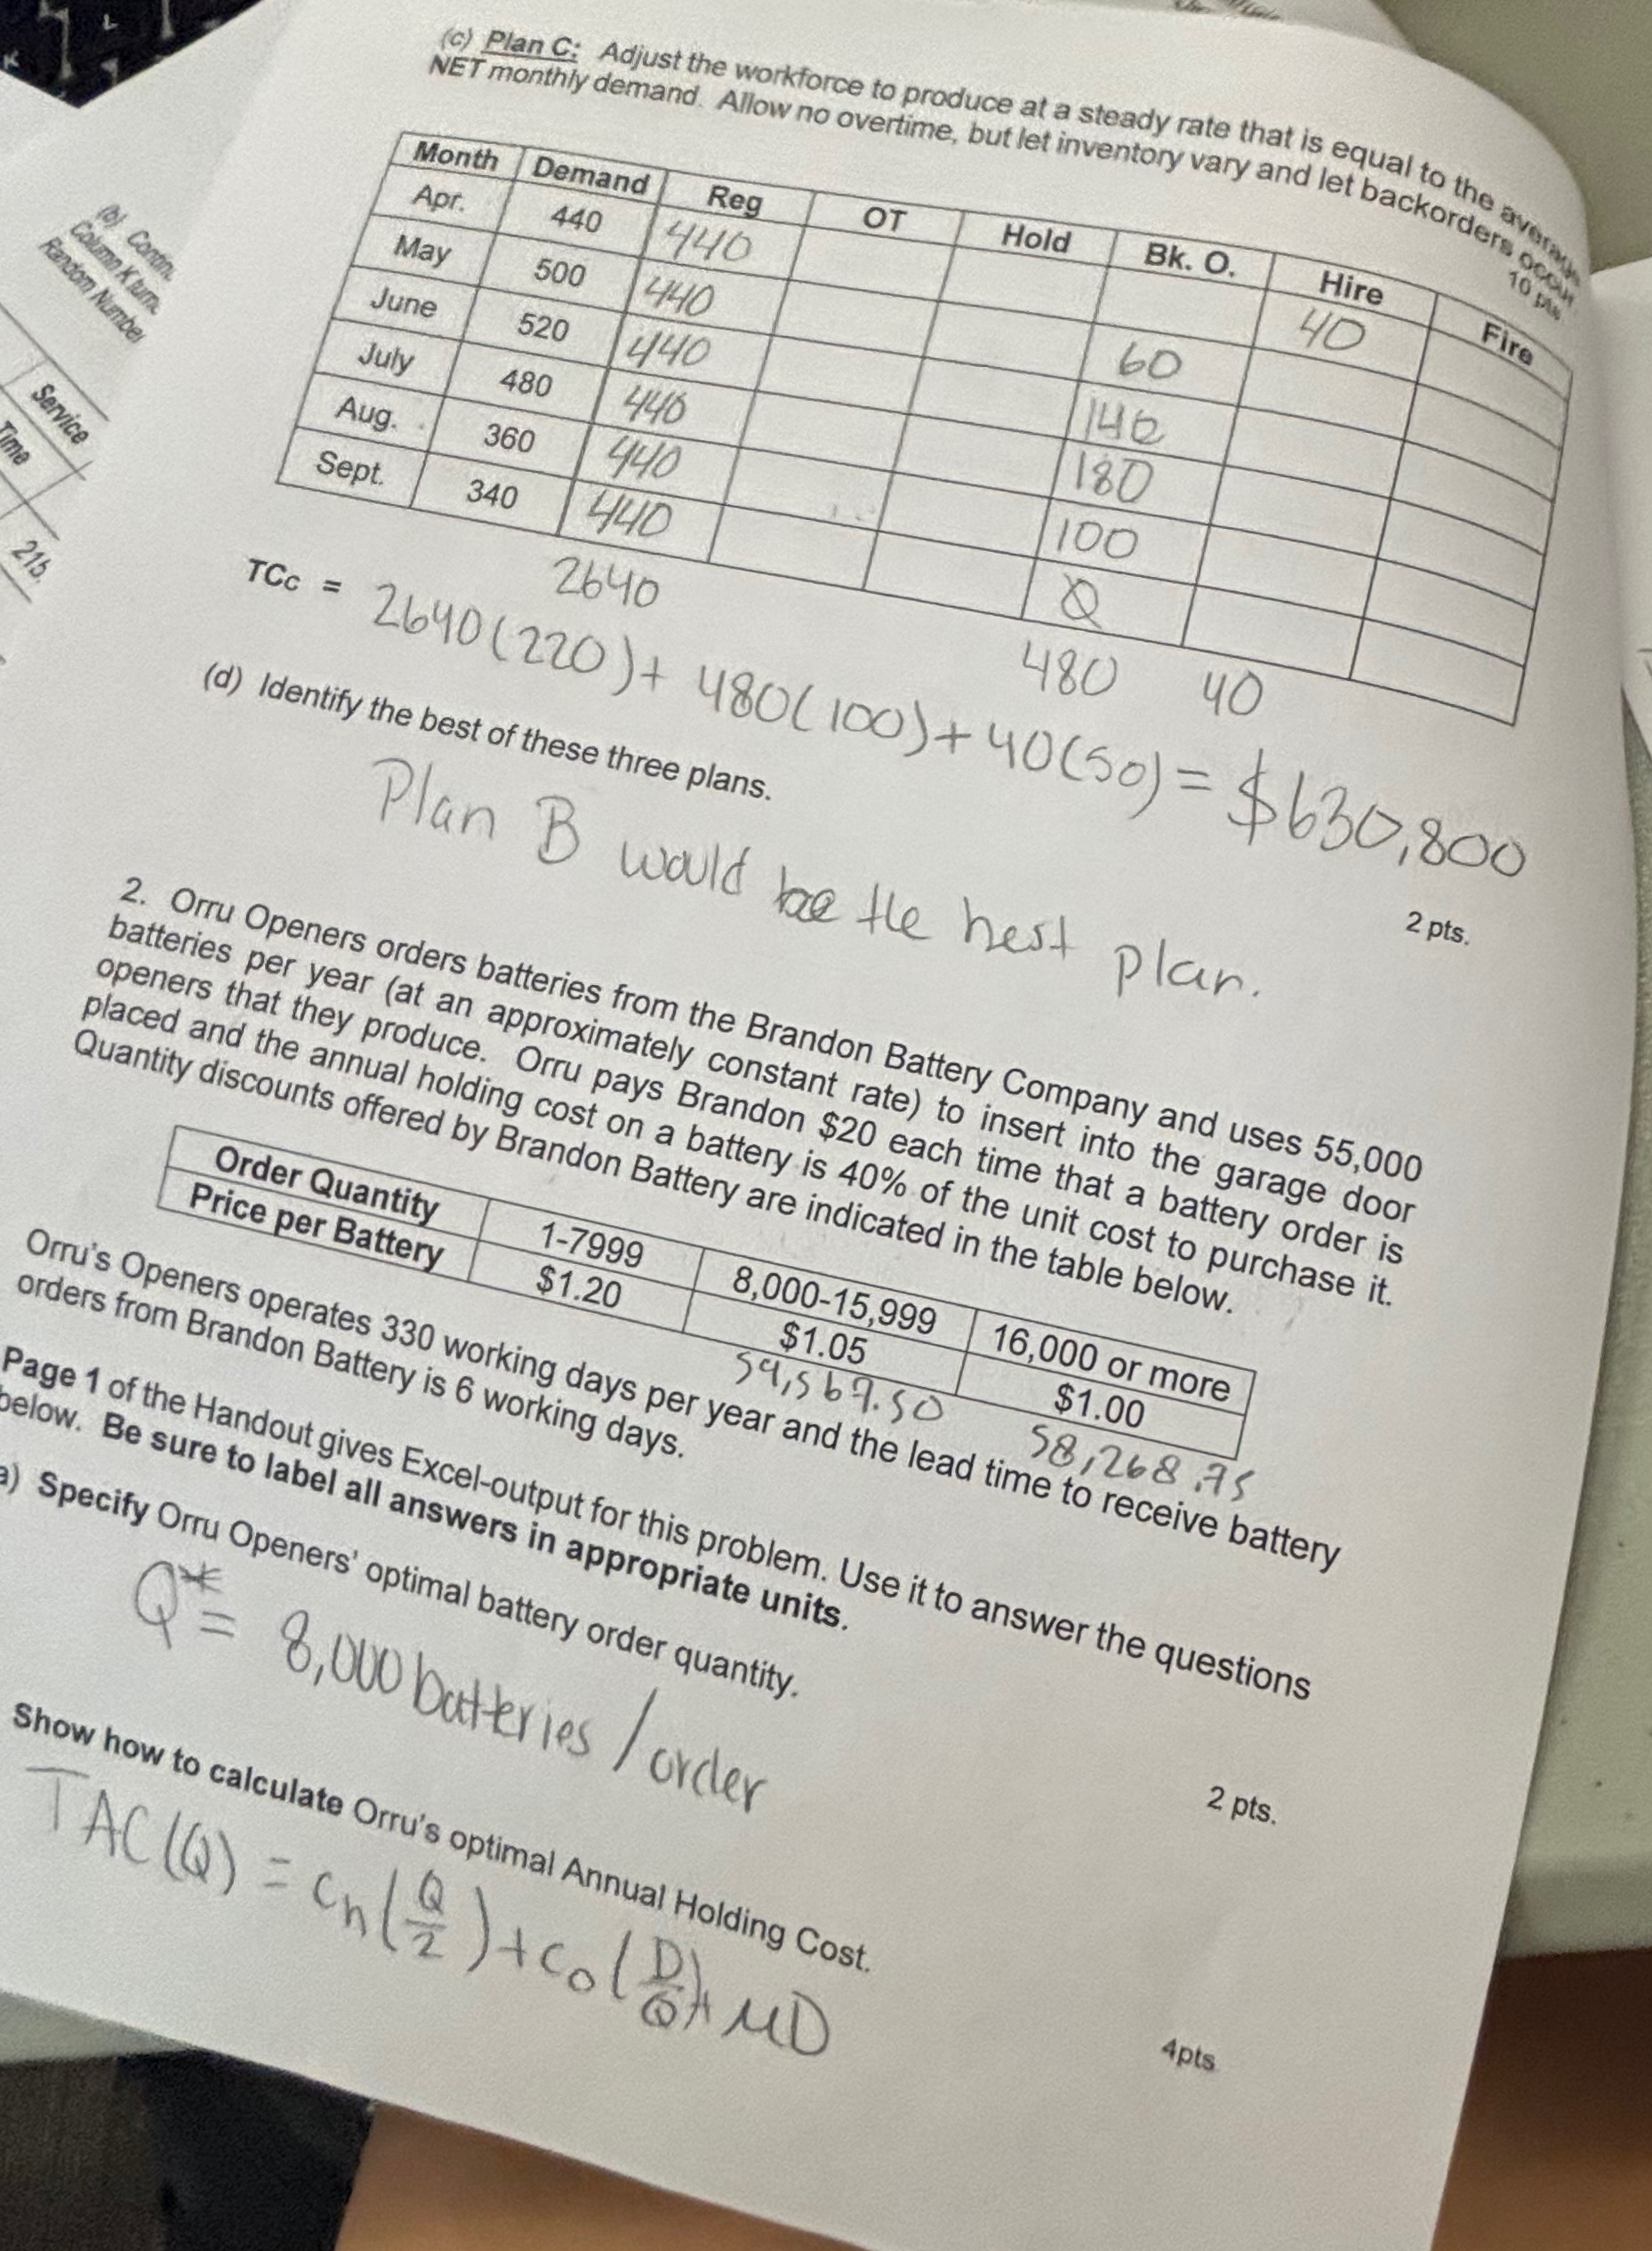 (c) Plan C: Adjust the workforce to produce at a steady rate that is equal to the average
NET monthly demand. Allow no overtime, but let inventory vary and let backorders occur.
10 pts.
Month Demand Reg OT Hold Bk. O. Hire Fire
Apr. 440 440 40
May 500 440 60
June 520 440 140
July 480 440 180
Aug. 360 440 100
Sept. 340 440 0
2640 480 40
TCc = 2640(220)+ 480(100)+40(50)= $630,800
(d) Identify the best of these three plans.
2 pts.
Plan B would be the best plan.
2. Orru Openers orders batteries from the Brandon Battery Company and uses 55,000
batteries per year (at an approximately constant rate) to insert into the garage door
openers that they produce. Orru pays Brandon $20 each time that a battery order is
placed and the annual holding cost on a battery is 40% of the unit cost to purchase it.
Quantity discounts offered by Brandon Battery are indicated in the table below.
Order Quantity 1-7999 8,000-15,999 16,000 or more
Price per Battery $1.20 $1.05 $1.00
59,567.50 58,268.75
Orru's Openers operates 330 working days per year and the lead time to receive battery
orders from Brandon Battery is 6 working days.
Page 1 of the Handout gives Excel-output for this problem. Use it to answer the questions
below. Be sure to label all answers in appropriate units.
a) Specify Orru Openers' optimal battery order quantity.
2 pts.
Q* = 8,000 batteries / order
Show how to calculate Orru's optimal Annual Holding Cost.
4pts
TAC(Q) = Ch(Q/2)+Co(D/Q)+ MD
(b) Contin.
Column K turn.
Random Number
Service
Time
215.